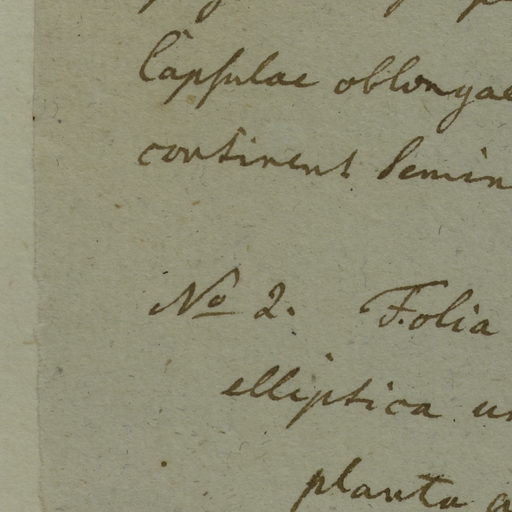 Capsulae oblongae
continent semin
No 2. Folia
elliptica u
planta a